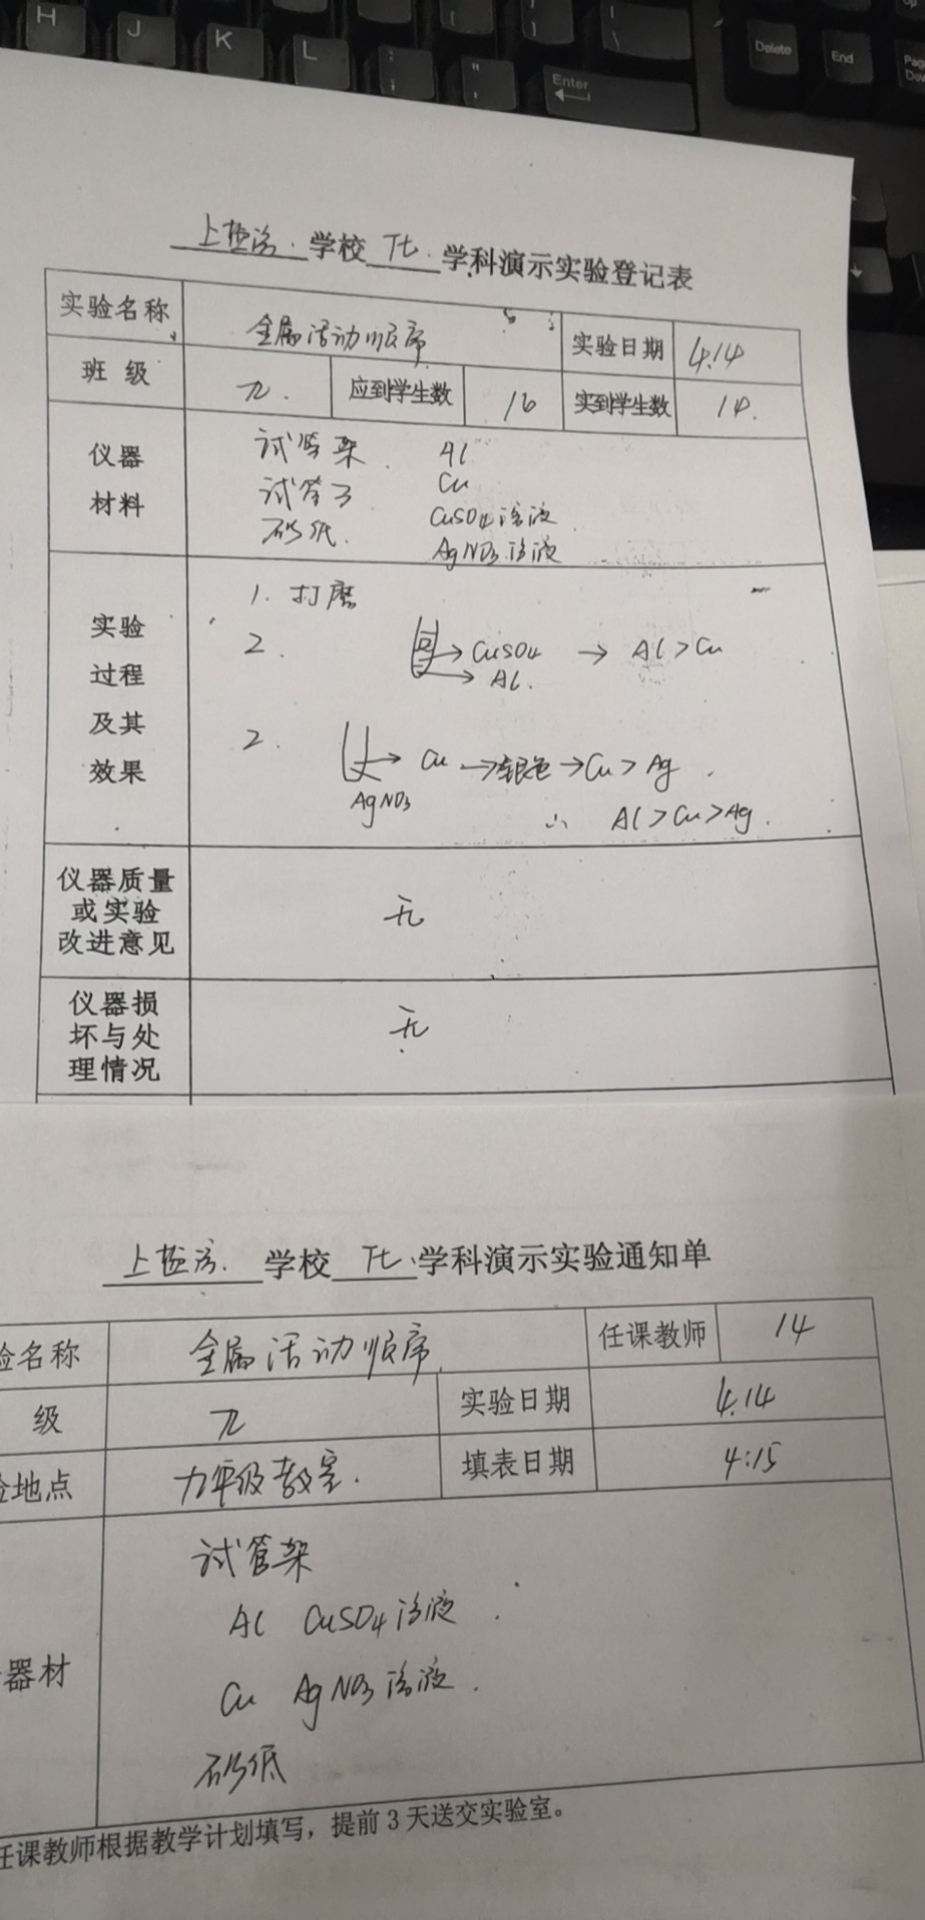 H J K L ; " Enter Delete End
学校 化 学科演示实验登记表
实验名称 金属活动顺序 实验日期 4.14
班 级 九. 应到学生数 16 实到学生数 14.
仪器 材料
试管架 Al
试管 Cu
砂纸. CuSO4溶液
AgNO3溶液
实验 过程 及其 效果
1. 打磨
2. → CuSO4 → Al > Cu
→ Al.
2. → Cu → 银色 → Cu > Ag
AgNO3
∴ Al > Cu > Ag.
仪器质量 或实验 改进意见 无
仪器损 坏与处 理情况 无
学校 化 学科演示实验通知单
验名称 金属活动顺序 任课教师 14
级 九 实验日期 4.14
地点 九年级教室. 填表日期 4:15
器材
试管架
Al CuSO4溶液
Cu AgNO3溶液.
砂纸
任课教师根据教学计划填写，提前3天送交实验室。